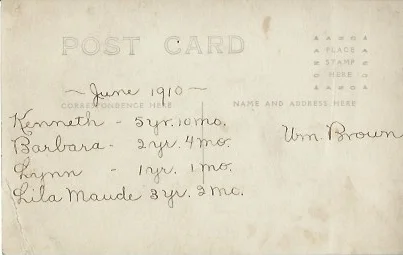 POST CARD
PLACE
STAMP
HERE
~ June 1910 ~
CORRESPONDENCE HERE
NAME AND ADDRESS HERE
Kenneth - 5yr. 10 mo.
Barbara - 2 yr. 4 mo.
Lynn - 1 yr. 1 mo.
Lila Maude 3 yr. 2 mo.
Wm. Brown